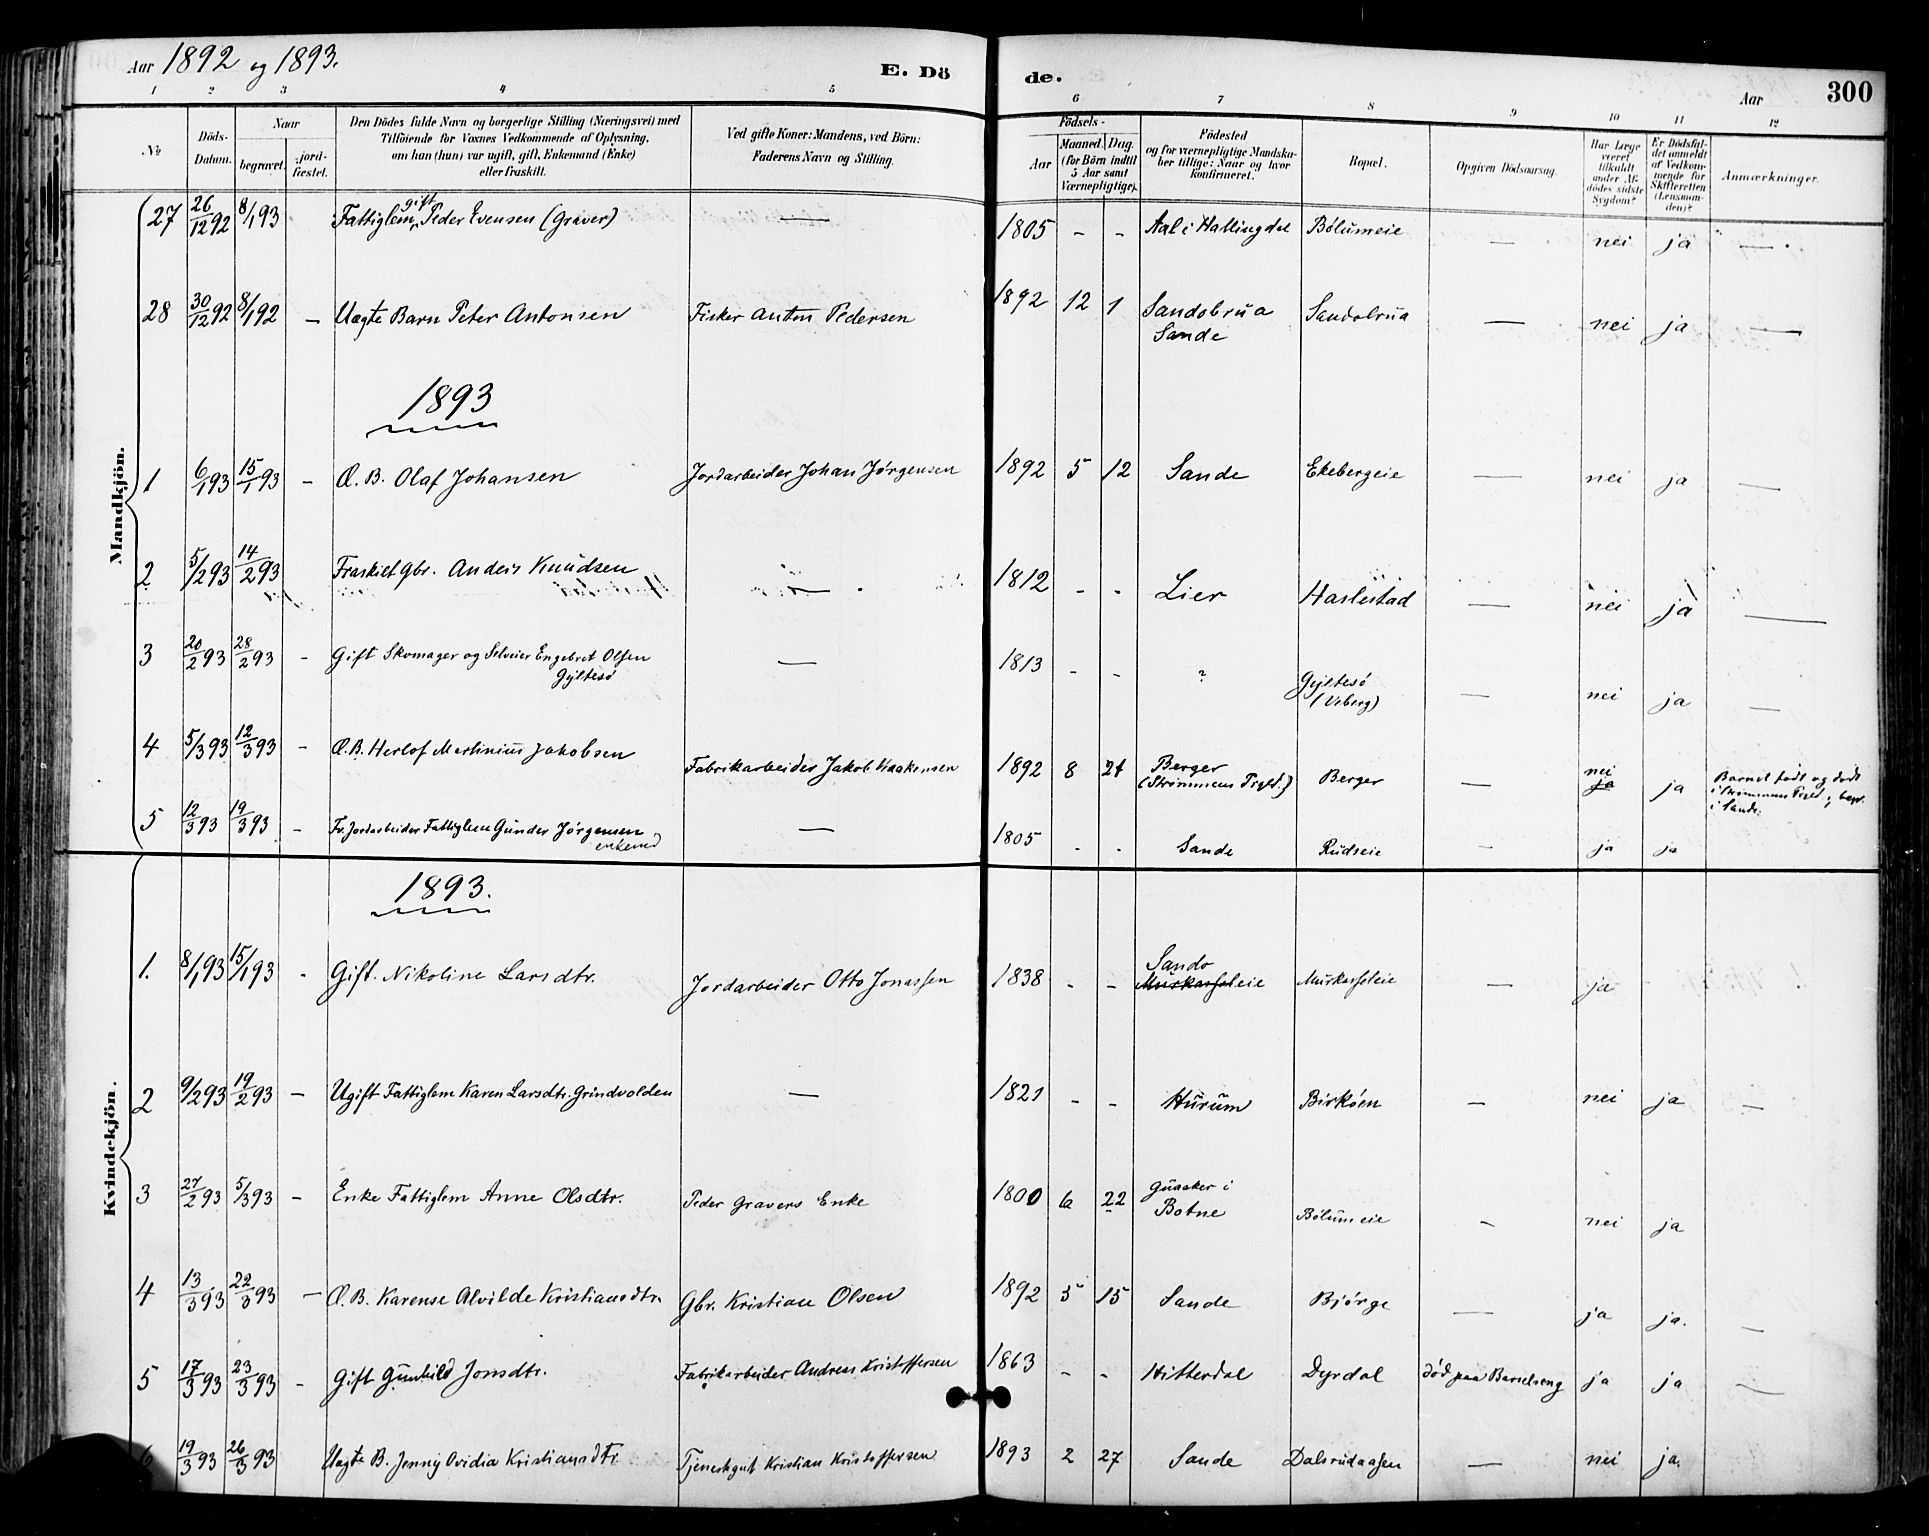 Aar 1892 og 1893.
E. Dö
de.
Aar
300
1 2 3 4 5 6 7 8 9 10 11 12
No
Döds-
Datum.
Naar
begravet.
jord-
fæstet.
Den Dödes fulde Navn og borgerlige Stilling (Næringsvei) med
Tilföiende for Voxnes Vedkommende af Oplysning,
om han (hun) var ugift, gift, Enkemand (Enke)
eller fraskilt.
Ved gifte Koner: Mandens, ved Börn:
Faderens Navn og Stilling.
Födsels-
Aar
Maaned. Dag.
(for Börn indtil
5 Aar samt
Værnepligtige).
Födested
og for værnepligtige Mandska-
ber tillige: Naar og hvor
konfirmeret.
Bopæl.
Opgiven Dödsaarsag.
Har Læge
været
tilkaldt
under Af-
dödes sidste
Sygdom?
Er Dödsfal-
det anmeldt
af Vedkom-
mende for
Skifteretten
(Lensman-
den)?
Anmærkninger.
Mandkjön.
27 26/12 92 8/1 93 Fattiglem gift Peder Evensen (Graver) — 1805 - - Aal i Hallingdal Bølumeie — nei ja —
28 30/12 92 8/1 92 — Uægte Barn Peter Antonsen Fisker Anton Pedersen 1892 12 1 Sandobrua Sandobrua — nei ja —
Sande
1893
1 6/1 93 15/1 93 - Æ. B. Olaf Johansen Jordarbeider Johan Jørgensen 1892 5 12 Sande Ekebergeie — nei ja —
2 5/2 93 14/2 93 Fraskilt Gbr. Anders Knudsen — 1812 - - Lier Haslestad — nei ja —
3 20/2 93 28/2 93 - Gift Skomager og Selveier Engebret Olsen — 1813 - - ? Gyltesø — nei ja —
Gyltesø
(Veberg)
4 5/3 93 12/3 93 - Æ. B. Herlof Martinius Jakobsen Fabrikarbeider Jakob Haakensen 1892 8 24 Berger Berger — nei ja
(Strømmens Prgld.)
ja
Barnet født og dødt
i Strømmens Prgld., begr.
i Sande.
5 12/3 93 19/3 93 - Fr. Jordarbeider Fattiglem Gunder Jørgensen — 1805 - - Sande Rudseie - ja ja
enkemd
Kvindekjön.
1893.
1. 8/1 93 15/1 93 - Gift. Nikoline Larsdtr. Jordarbeider Otto Jonassen 1838 - - Sande Murkasseleie — ja
Murkasseleie
2 9/2 93 19/2 93 — Ugift Fattiglem Karen Larsdtr. Grindvolden — 1821 - - Hurum Birkøen — nei ja —
3 27/2 93 5/3 93 - Enke Fattiglem Anne Olsdtr. Peder Gravers Enke 1800 6 22 Guaaker i Bølumeie - nei ja
Botne
4 13/3 93 22/3 93 — Æ. B. Karense Alvilde Kristiansdtr. Gbr. Kristian Olsen 1892 5 15 Sande Bjørge — ja ja. —
5 17/3 93 23/3 93 - Gift Gunhild Jonsdtr. Fabrikarbeider Andreas Kristoffersen 1863 - - Hitterdal Dyrdal død paa Barselseng ja ja —
6 19/3 93 26/3 93 Uægte B. Jenny Ovidia Kristiansdtr. Tjenestgut Kristian Kristoffersen 1893 2 27 Sande Dalsrudaasen — nei ja.